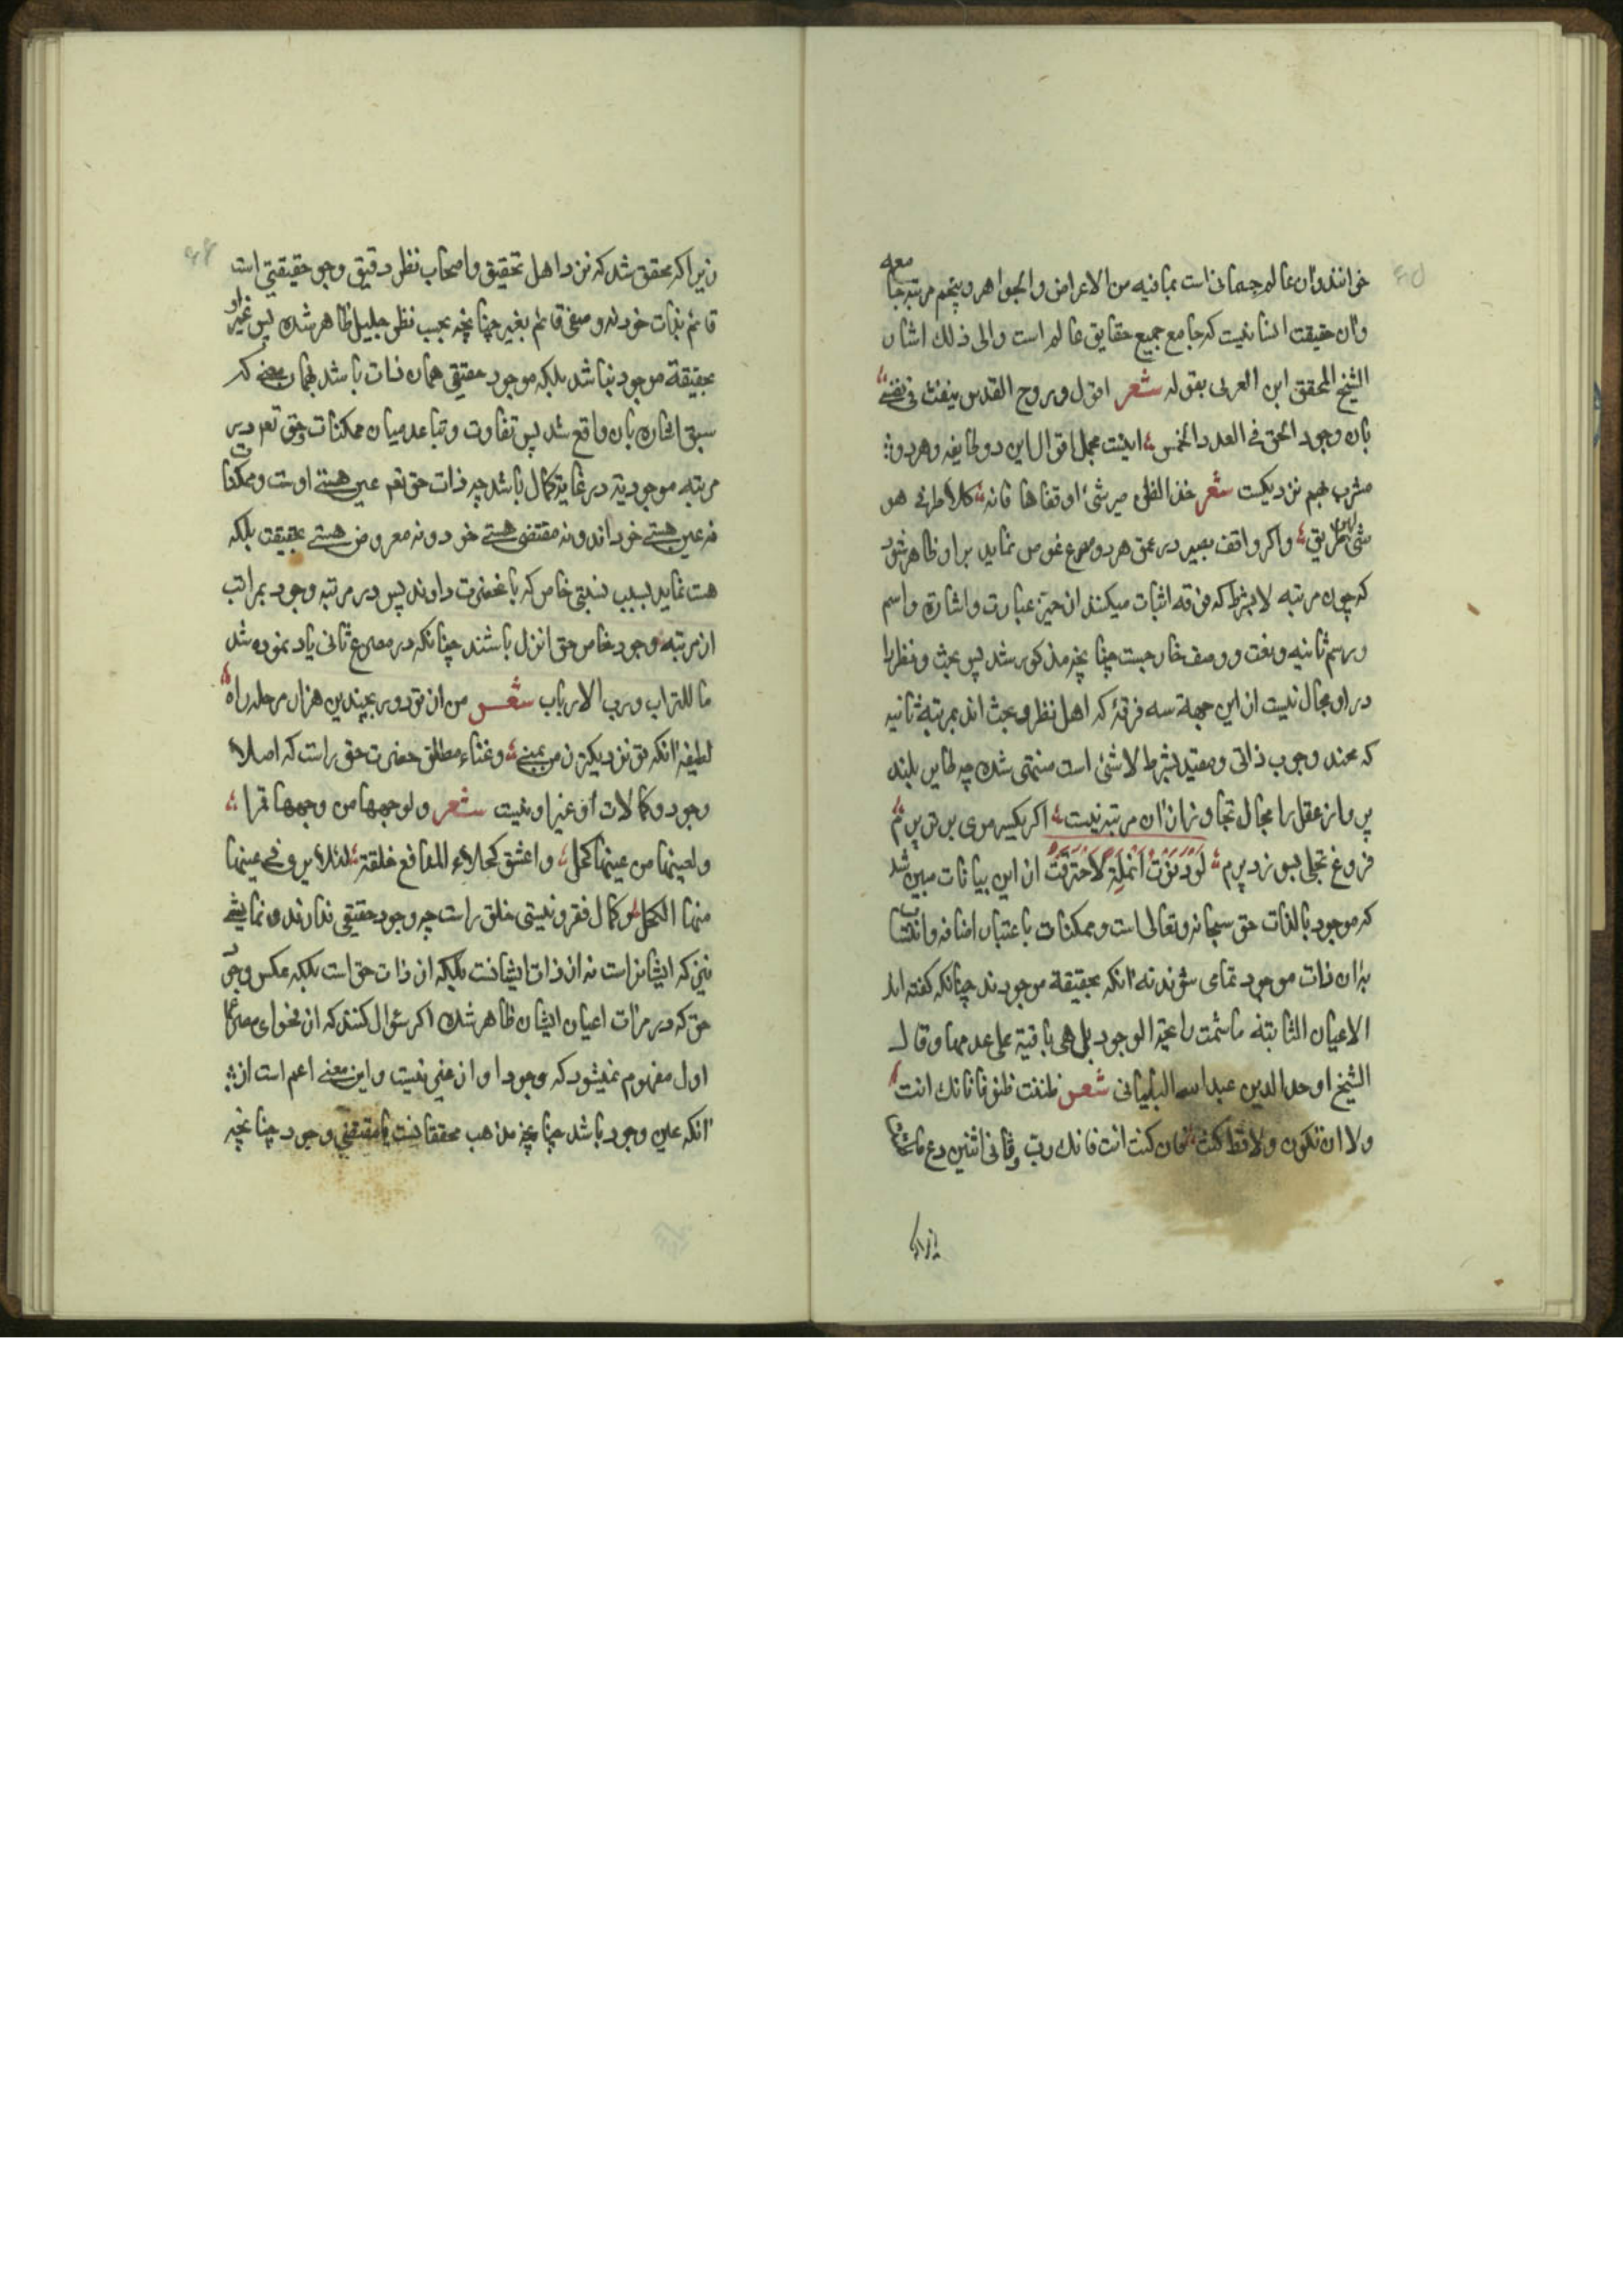 خوانند و آن عالم جسمانی است بما فیه من الاعراض و الجواهر و پنجم مرتبه جامعه
و آن حقیقت انسانیست که جامع جمیع حقایق عالم است و الی ذلک اشار
الشیخ المحقق ابن العربی بقوله شعر اقول و روح القدس ینفث فی نفسی
بان وجود الحق فی العدد الخمس اینست مجمل اقوال این دو طایفه و هر دو
مشرب بهم نزدیکست شعر خذا انف هرشی او قفاها فانه کلا طرفی هو
شی لهن طریق و اگر واقف بصیر در عمق هر دو مصرع غوص نماید بر او ظاهر شود
که چون مرتبه لا بشرط که فرقه اثبات میکنند از حیز عبارت و اشارة و اسم
و رسم ثانیه و نعت و وصف خارجست چنانچه مذکور شد پس بحث و نظر را
در او مجال نیست از این جهة سه فرقه که اهل نظر و بحث اند بمرتبه ثانیه
که عند وجوب ذاتی و مقید بشرط لا شئ است منتهی شده چه طایر بلند
پرواز عقل را مجال تجاوز از آن مرتبه نیست اگر یکسر موی برتر پرم
فروغ تجلی بسوزد پرم لَوْ دَنَوْتُ اَنْمُلَةً لَاحْتَرَقْتُ از این بیانات مبین شد
که موجود بالذات حق سبحانه و تعالی است و ممکنات باعتبار اضافه و انتساب
بآن ذات موجود نمای شوند نه آنکه بحقیقة موجودند چنانکه گفته اند
الاعیان الثابتة ما شمت رایحة الوجود بل هی باقیة علی عدمها و قال
الشیخ اوحد الدین عبد الله البلیانی شعر ظننت ظنونا بانك انت
و لا ان تکون و لا قط کنت فان کنت انت فانك رب و ثانی اثنین دع ما
زیرا که
زیرا که محقق شد که نزد اهل تحقیق و اصحاب نظر دقیق وجود حقیقتی است
قائم بذات خود نه و صفی قائم بغیر چنانچه بحسب نظر جلیل ظاهر شده پس غیر او
بحقیقة موجود نباشد بلکه موجود حقیقی همان ذات باشد بهمان معنی که
سبق اشاره بآن واقع شد پس تفاوت و تباعد میان ممکنات و حق تعم در
مرتبه موجودیة در غایة کمال باشد چه ذات حق تعم عین هستی اوست و ممکنات
نه عین هستی خود اند و نه مقتضی هستی خود و نه معروض هستی بحقیقت بلکه
هست نماید بسبب نسبتی خاص که باحضرت دارند پس در مرتبه وجود بمراتب
از مرتبه وجود خاص حق انزل باشند چنانکه در مصرع ثانی یاد نموده شد
ما للتراب و رب الارباب شعر من از تو دور بچندین هزار مرحله راه
لطیفه آنکه تو نزدیکتر ز من بمنی و غناء مطلق حضرت حق راست که اصلا
وجود و کمالات او از غیر او نیست شعر و لوجهها من وجهها قمرا
و لعینها من عینها کحل و اعشق کحلاء المدامع خلقة لئلا یری فی عینها
منها الکحل و کمال فقر و نیستی خلق راست چه وجود حقیقی ندارند و نمایشی
نیز که ایشانراست نه از ذات ایشانست بلکه از ذات حق است بلکه عکس وجود
حق که در مرآت اعیان ایشان ظاهر شده اگر سؤال کنند که از فحوای مصرع
اول مفهوم نمیشود که وجود او از غیر نیست و این معنی اعم است از
آنکه عین وجود باشد چنانچه مذهب محققانست یا مقتضی وجود چنانچه